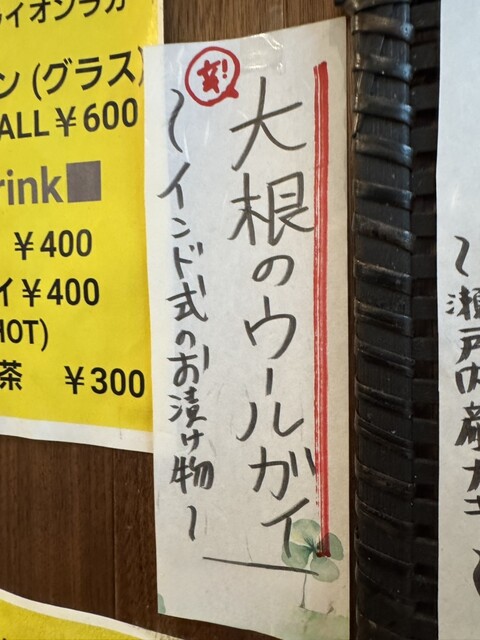 イオンラガ
ン(グラス)
ALL¥600
rink
¥400
イ¥400
HOT)
茶 ¥300
大根のウールガイ
～インド式のお漬け物～
～瀬戸内産カキ